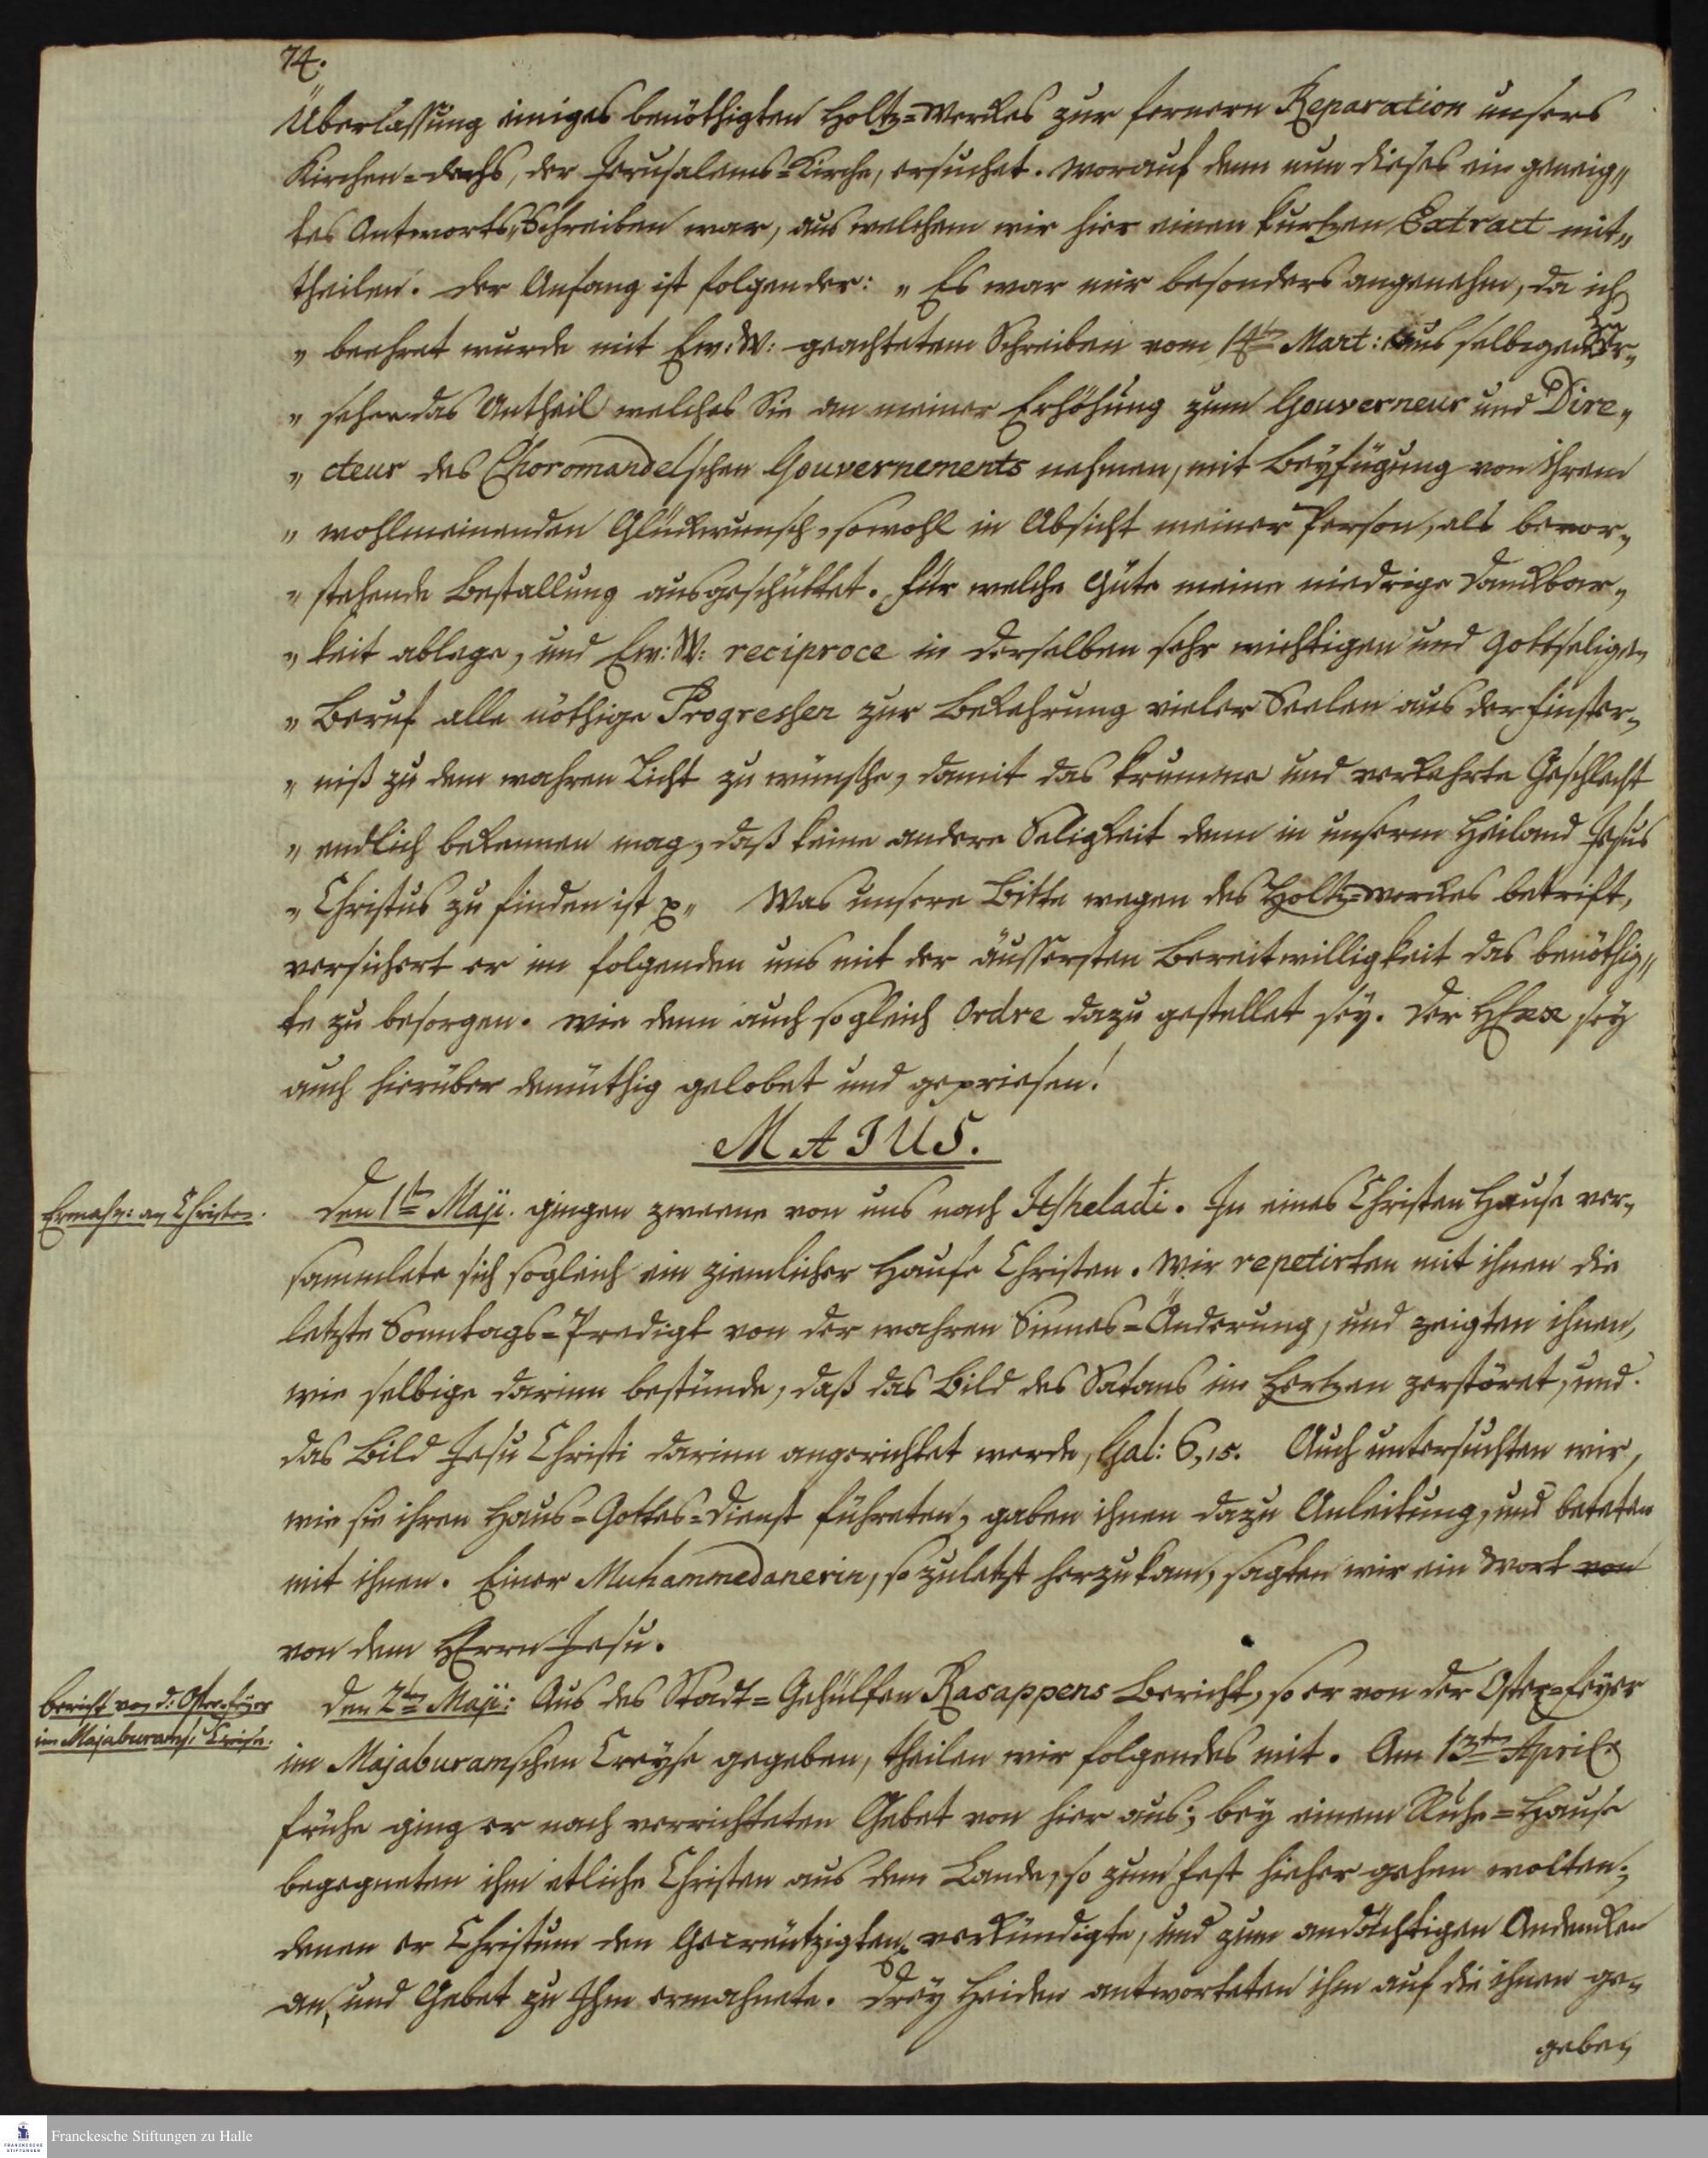 74.
Überlassung einiges benöthigten Holtz=Werckes zur fernern Reparation unsers
Kirchen=dachs, der Jerusalems=Kirche, ersuchet. Worauf denn nun dieses ein geneig„
tes Antworts„Schreiben war, aus welchem wir hier einen kurtzen Extract mit„
theilen. Der Anfang ist folgender: „Es war mir besonders angenehm, da ich
„ beehret wurde mit Ew: W: geachtetem Schreiben vom 14ten Mart: aus selbigen zu er„
„ sehen das Antheil welches Sie an meiner Erhöhung zum Gouverneur und Dire„
„ cteur des Choromandelschen Gouvernements nehmen, mit Beyfügung von Ihrem
„ wohlmeinenden Glückwunsch, sowohl in Absicht meiner Person, als bevor„
„ stehende Bestallung ausgeschüttet. Für welche Güte meine niedrige Danckbar„
„ keit ablege, und Ew: W: reciproce in derselben sehr wichtigen und Gottseligen
„ Beruf alle nöthige Progressen zur Bekehrung vieler Seelen aus der Finster„
„ niß zu dem wahren Licht zu wünsche, damit das krumme und verkehrte Geschlecht
„ endlich bekennen mag, daß keine andere Seligkeit denn in unserm Heiland Jesus
„ Christus zu finden ist p„ Was unsere Bitte wegen des Holtz=Werckes betrift,
versichert er im folgenden uns mit der äussersten Bereitwilligkeit das benöthig„
te zu besorgen. Wie denn auch sogleich Ordre dazu gestellet sey. Der HErr sey
auch hierüber demüthig gelobet und gepriesen!
MAJUS.
Ermahn: an Christen.
Den 1ten Maji. gingen zweene von uns nach Itsheladi. In eines Christen Hause ver„
sammlete sich sogleich ein ziemlicher Haufe Christen. Wir repetirten mit ihnen die
letzte Sonntags=Predigt von der wahren Sinnes=Änderung, und zeigten ihnen,
wie selbige darinn bestünde, daß das Bild des Satans im Hertzen zerstöret, und
das Bild Jesu Christi darinn angerichtet werde, Gal: 6,15. Auch untersuchten wir,
wie sie ihren Haus=Gottes=Dienst führeten, gaben ihnen dazu Anleitung, und beteten
mit ihnen. Einer Muhammedanerin, so zuletzt herzu kam, sagten wir ein Wort von
von dem HErrn Jesu.
Bericht von d: Osterfeyer
im Majaburams: Creise.
Den 2ten Maji: Aus des Stadt=Gehülfen Rasappens Bericht, so er von der Oster=Feyer
im Majaburamschen Creyse gegeben, theilen wir folgendes mit. Am 13ten April.
frühe ging er nach verrichteten Gebet von hier aus; bey einem Ruhe=Hause
begegneten ihm etliche Christen aus dem Lande, so zum Fest hieher gehen wolten;
denen er Christum den Gecreutzigten verkündigte, und zum andächtigen Andencken
an, und Gebet zu Ihm ermahnete. Drey Heiden antworteten ihm auf die ihnen ge„
geben
Franckesche Stiftungen zu Halle